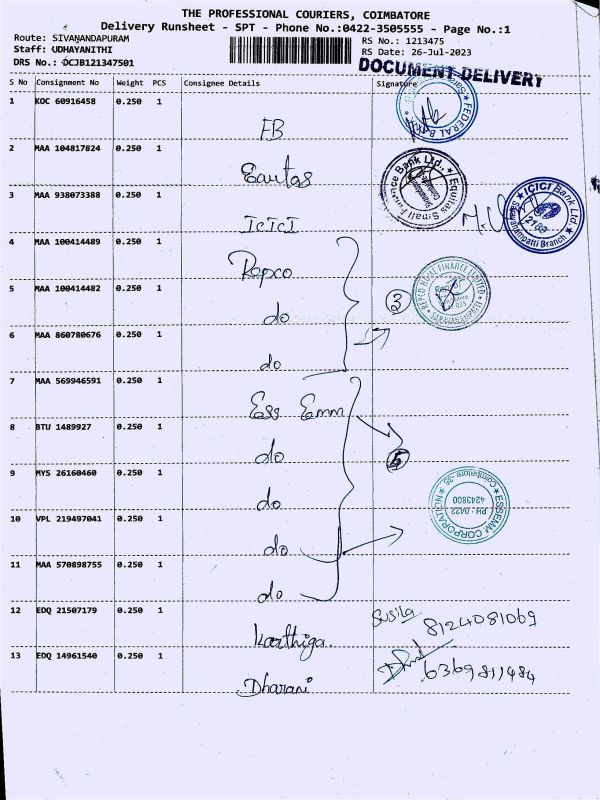 THE PROFESSIONAL COURIERS, COIMBATORE
Delivery Runsheet - SPT - Phone No.:0422-3505555 - Page No.:1
Route: SIVANANDAPURAM
RS No.: 1213475
Staff: UDHAYANITHI
RS Date: 26-Jul-2023
DRS No.: DCJB121347501
DOCUMENT DELIVERY
S No Consignment No Weight PCS Consignee Details Signature
1 KOC 60916458 0.250 1 FB
FEDERAL BANK
2 MAA 104817824 0.250 1 Equitas
Equitas Small Finance Bank Ltd.,
3 MAA 938073388 0.250 1 ICICI
ICICI Bank Ltd
Saravanampatti Branch
4 MAA 100414489 0.250 1 Repco
5 MAA 100414482 0.250 1 do
3
REPCO HOME FINANCE LIMITED
6 MAA 860780676 0.250 1 do
7 MAA 569946591 0.250 1 Ess Emm
8 BTU 1489927 0.250 1 do
5
9 MYS 26160460 0.250 1 do
ESSEMM CORPORATION
Coimbatore-35
PH : 0422
4243800
10 VPL 219497041 0.250 1 do
11 MAA 570898755 0.250 1 do
12 EDQ 21507179 0.250 1 Karthiga.
Susila 8124081069
13 EDQ 14961540 0.250 1 Dharani
6369811484